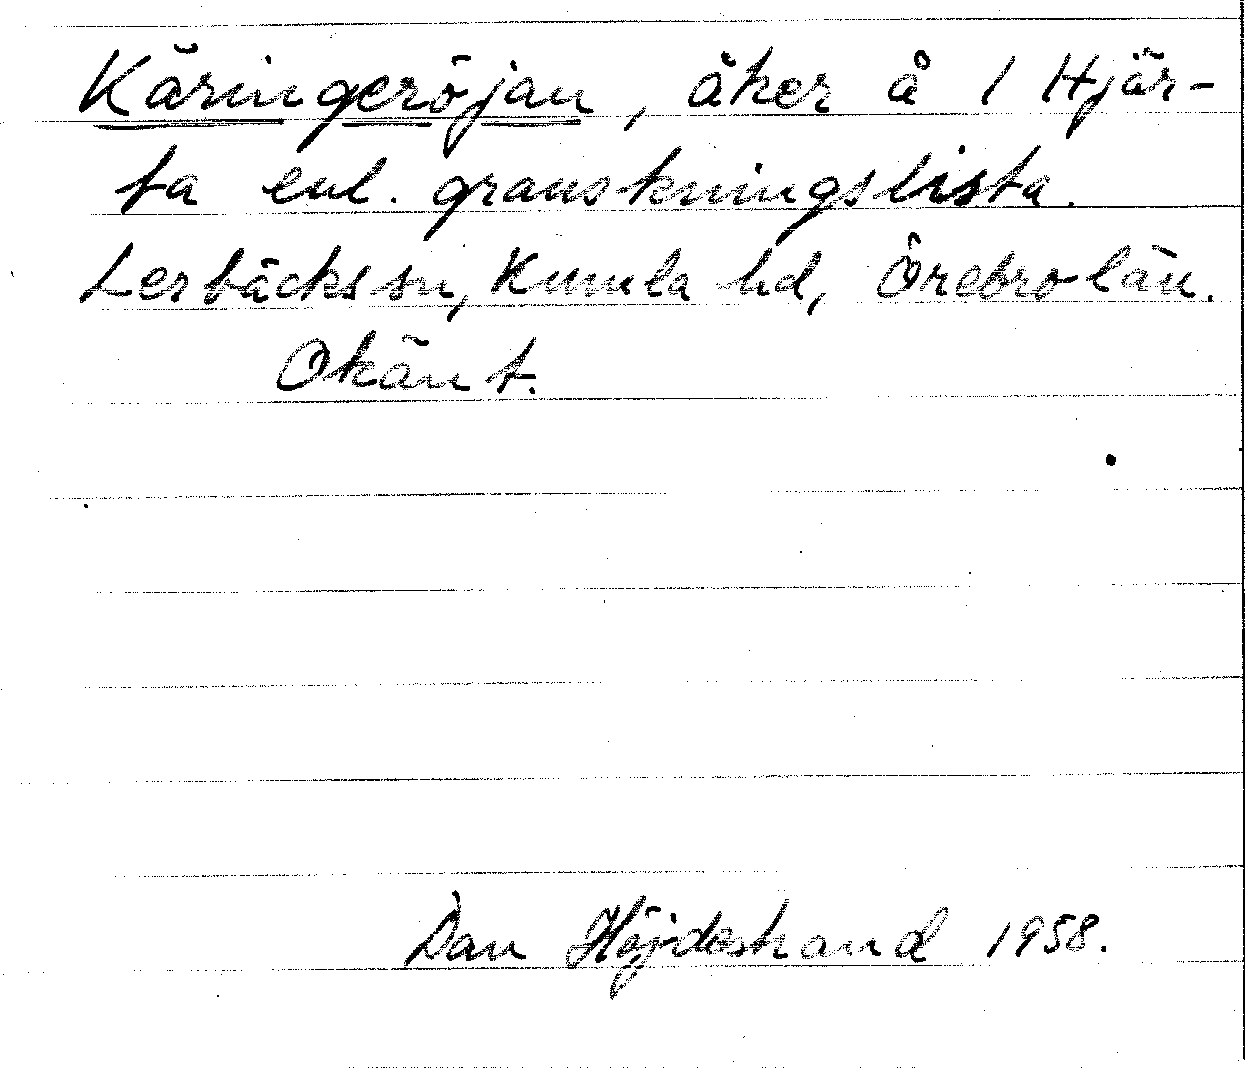 Käringeröjan, åker å 1 Hjär-
ta enl. granskningslista.
Lerbäcks sn, Kumla hd, Örebro län.
Okänt.
Dan Höjdestrand 1958.